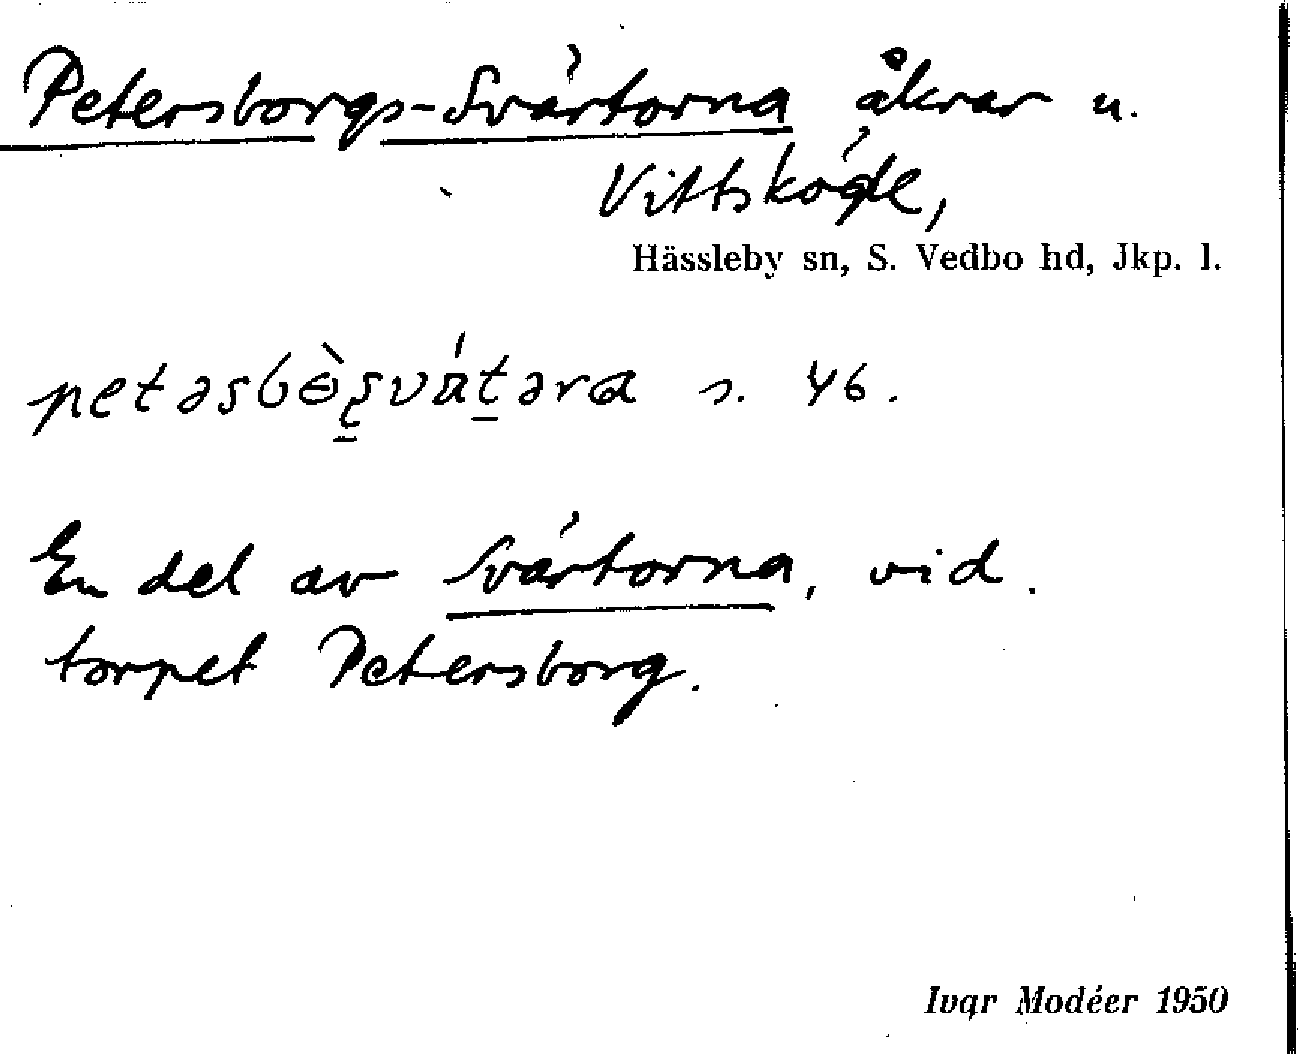 Petersborgs-Svärtorna åkrar u.
Vittskögle,
Hässleby sn, S. Vedbo hd, Jkp. l.
s. 46.
En del av Svärtorna, vid
torpet Petersborg.
Ivar Modéer 1950